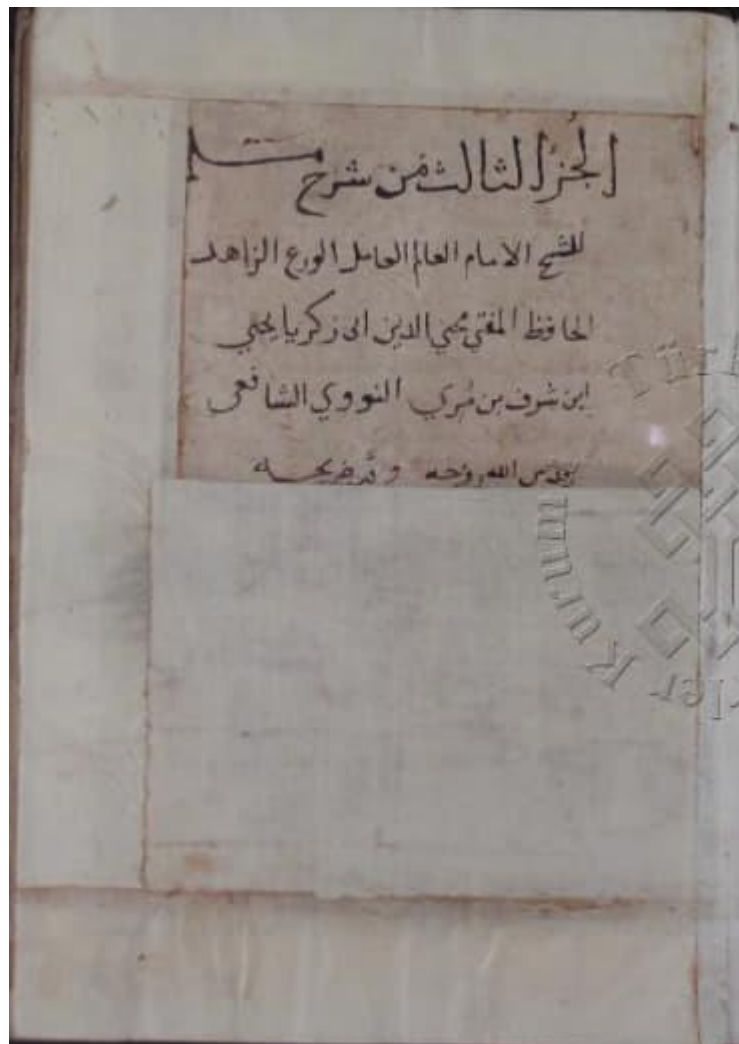 الجزء الثالث من شرح مسلم
للشيخ الامام العالم العامل الورع الزاهد
الحافظ المفتي محيي الدين ابى زكريا يحيى
ابن شرف بن مُري النووي الشافعى
قدس الله روحه ونور ضريحه